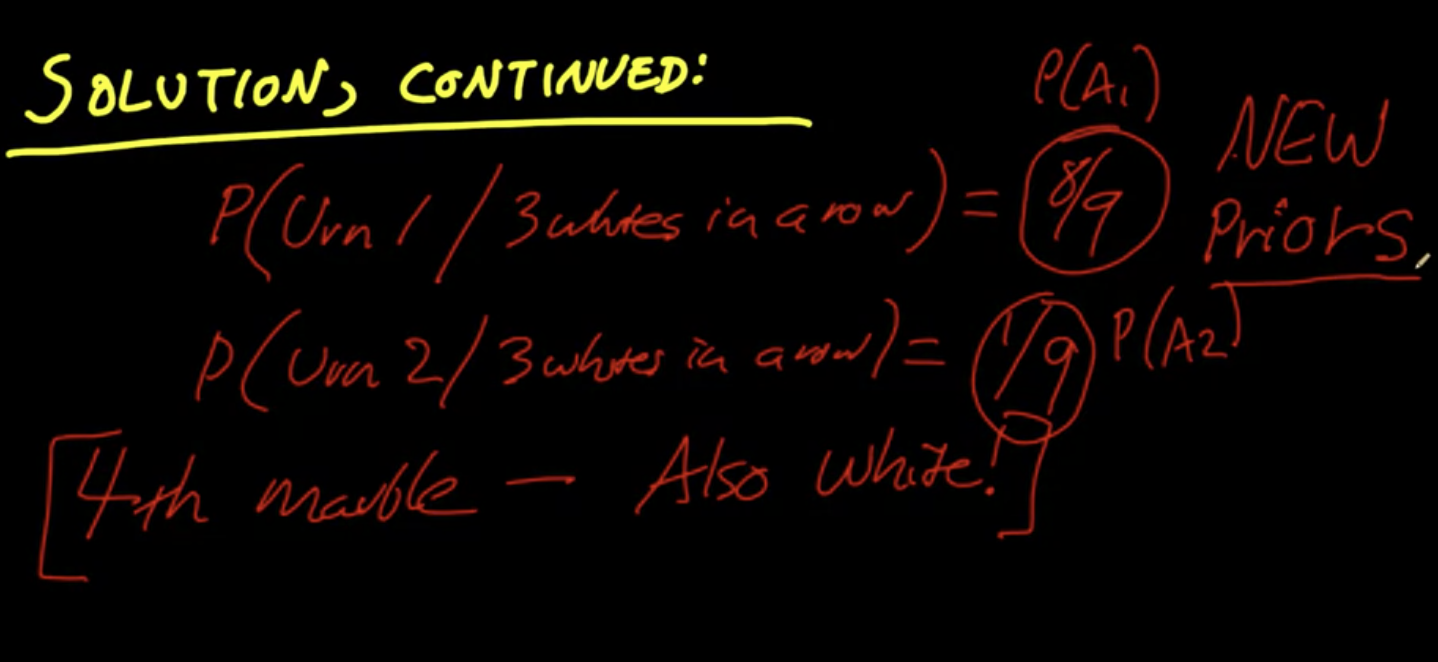 SOLUTION, CONTINUED:
P(A1)
P(Urn 1 / 3 whites in a row) = 8/9
NEW
Priors
P(Urn 2 / 3 whites in a row) = 1/9 P(A2)
[4th marble — Also white!]